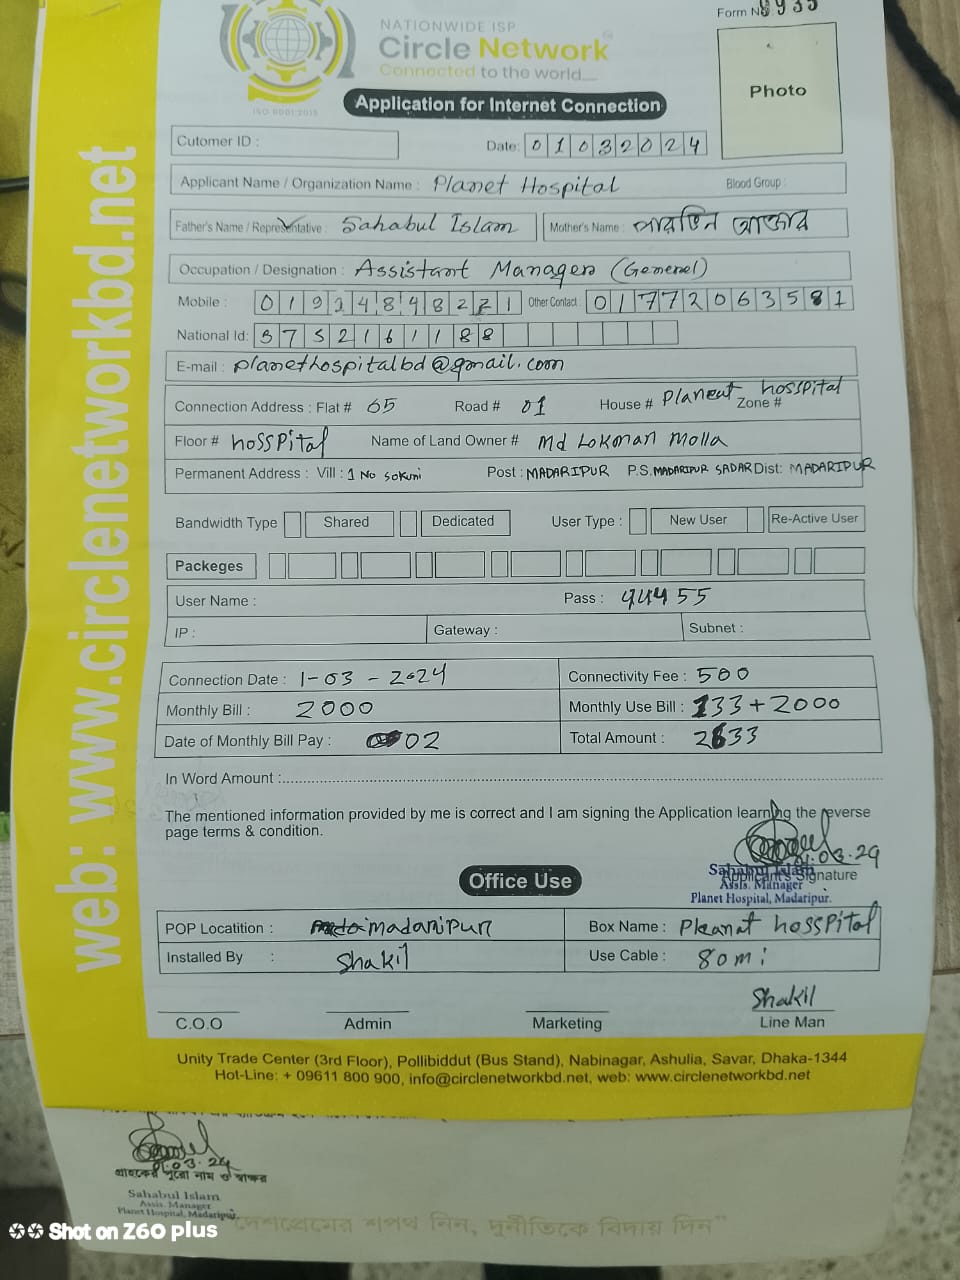 Form No 8935
NATIONWIDE ISP
Circle Network
Connected to the world....
ISO 9001:2015
Application for Internet Connection
Photo
Cutomer ID :
Date: 01032024
Applicant Name / Organization Name : Planet Hospital Blood Group :
Father's Name / Representative : Sahabul Islam Mother's Name : পারভিন আক্তার
Occupation / Designation : Assistant Manager (General)
Mobile : Other Contact : 01772063581
National Id: 3752161188
E-mail : planethospitalbd@gmail.com
Connection Address : Flat # 05 Road # 01 House # Planeat hosspital Zone #
Floor # hosspital Name of Land Owner # Md Lokman Molla
Permanent Address : Vill : 1 No Sakuni Post : MADARIPUR P.S. MADARIPUR SADAR Dist: MADARIPUR
Bandwidth Type Shared Dedicated User Type : New User Re-Active User
Packeges
User Name : Pass : 44455
IP : Gateway : Subnet :
Connection Date : 1-03-2024 Connectivity Fee : 500
Monthly Bill : 2000 Monthly Use Bill : 133+2000
Date of Monthly Bill Pay : 02 Total Amount : 2633
In Word Amount :
The mentioned information provided by me is correct and I am signing the Application learning the reverse
page terms & condition.
01.03.24
Sahabul Islam
Applicant's Signature
Assis. Manager
Planet Hospital, Madaripur.
Office Use
POP Locatition : madaripur Box Name : Pleanat hosspital
Installed By : Shakil Use Cable : 80 mi
Shakil
C.O.O Admin Marketing Line Man
Unity Trade Center (3rd Floor), Pollibiddut (Bus Stand), Nabinagar, Ashulia, Savar, Dhaka-1344
Hot-Line: + 09611 800 900, info@circlenetworkbd.net, web: www.circlenetworkbd.net
web: www.circlenetworkbd.net
01.03.24
গ্রাহকের পুরো নাম ও স্বাক্ষর
Sahabul Islam
Assis. Manager
Planet Hospital, Madaripur.
"দেশপ্রেমের শপথ নিন, দুর্নীতিকে বিদায় দিন"
Shot on Z60 plus